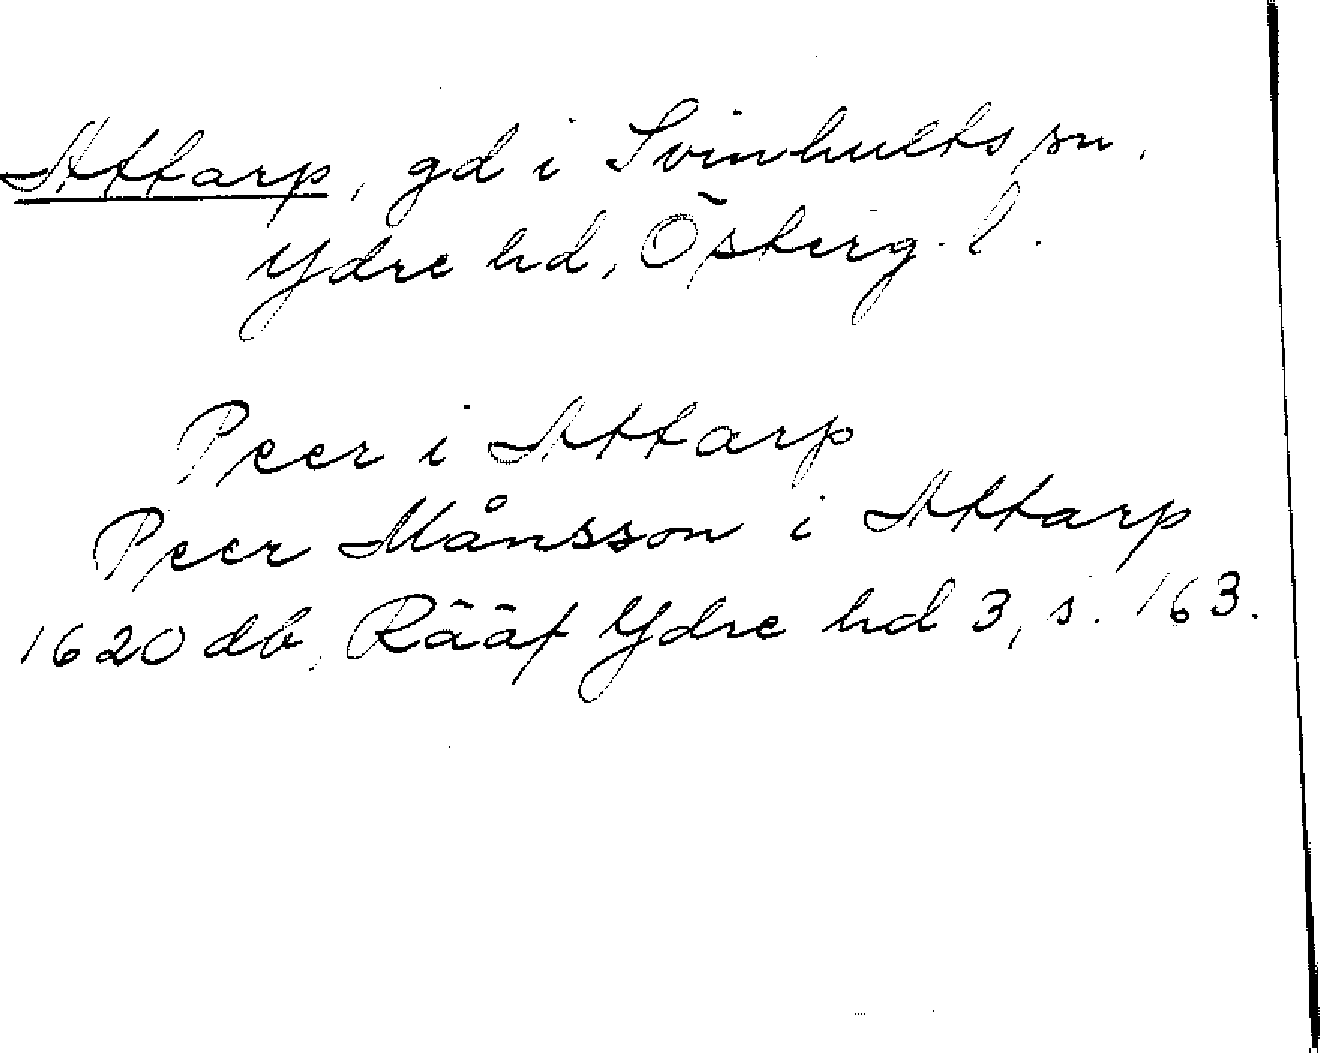 Attarp, gd i Svinhults sn,
Ydre hd, Österg. l.
Peer i Attarp
Peer Månsson i Attarp
1620 db, Rääf Ydre hd 3, s. 163.